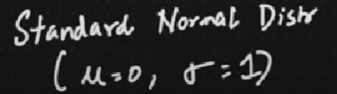 Standard Normal Distr
(μ=0, σ=1)